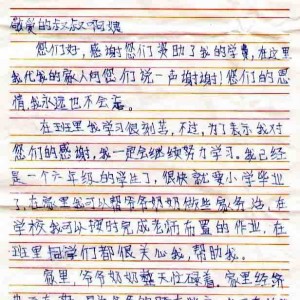 敬爱的叔叔啊姨
您们好,感谢您们资助了我的学费,在这里
我代我的家人向您们说一声谢谢!您们的恩
情,我永远也不会忘。
在班里我学习很刻苦,不过,为了表示我对
您们的感谢,我一定会继续努力学习。我已经
是一个六年级的学生了,很快就要小学毕业
了,在家里我可以帮爷爷奶奶做些家务活,在
学校我可以按时完成老师布置的作业,在
班里同学们都很关心我,帮助我。
家里,爷爷奶奶整天忙碌着,家里经济